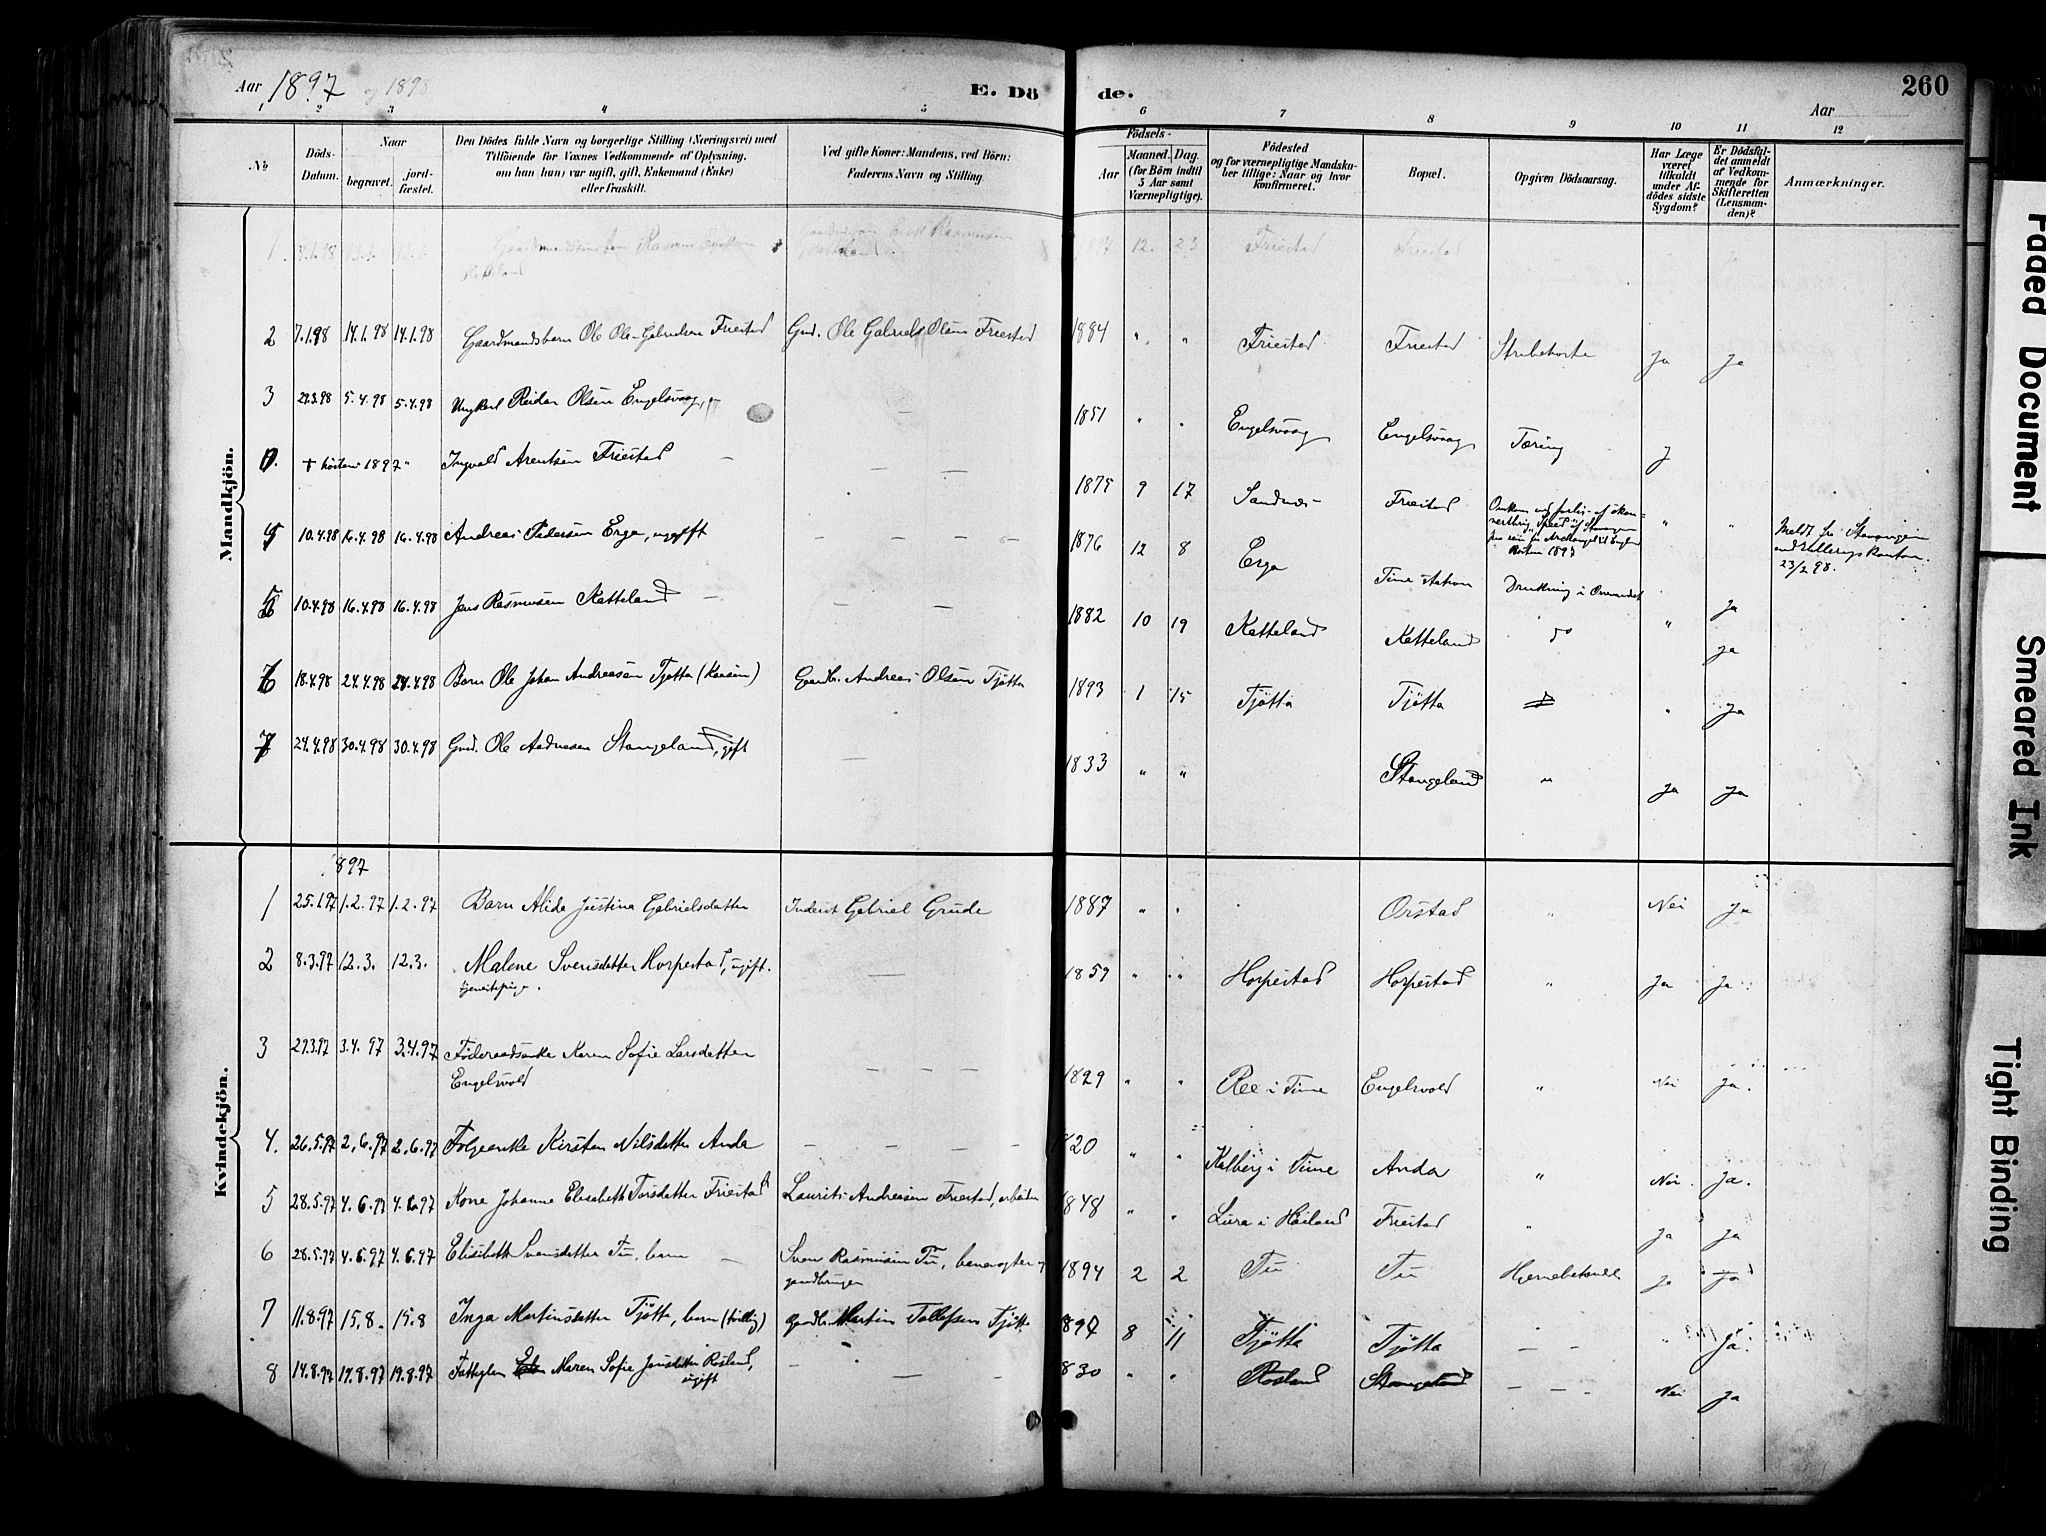 Aar 1897 og 1898
E. Dö de.
Aar
260
1 2 3 4 5 6 7 8 9 10 11 12
No
Döds-Datum.
Naar
begravet.
jord-fæstet.
Den Dödes fulde Navn og borgerlige Stilling (Næringsvei) med
Tilföiende for Voxnes Vedkommende af Oplysning,
om han (hun) var ugift, gift, Enkemand (Enke)
eller fraskilt.
Ved gifte Koner: Mandens, ved Börn:
Faderens Navn og Stilling.
Födsels-
Aar
Maaned. Dag.
(for Börn indtil
5 Aar samt
Værnepligtige).
Födested
og for værnepligtige Mandska-
ber tillige: Naar og hvor
konfirmeret.
Bopæl.
Opgiven Dödsaarsag.
Har Læge
været
tilkaldt
under Af-
dödes sidste
Sygdom?
Er Dödsfal-
det anmeldt
af Vedkom-
mende for
Skifteretten
(Lensman-
den)?
Anmærkninger.
Mandkjön.
1. 13.1. 13.1. Rasmus 1897 12. 23 Friestad Friestad
2 7.1.98 14.1.98 14.1.98 Gaardmandsbarn Ole Ole-Gabrielsen Friestad Gmd. Ole Gabriel Olsen Friestad 1884 " " Friestad Friestad Strubehoste Ja Ja
3 29.3.98 5.4.98 5.4.98 Ungkarl Reidar Olsen Engelsvaag — 1851 " " Engelsvaag Engelsvaag Tæring J
0. + hösten 1897 " Ingvald Arentsen Friestad — — — 1875 9 17 Sandnes Friestad " " Meldt fra Stavanger
23/2 98.
10.4.98 16.4.98 16.4.98 Andreas Pedersen Erga, ugift — — — 1876 12 8 Erga Time Station Drukning i Orrevandet " Ja
5 10.4.98 16.4.98 16.4.98 Jens Rasmusen Katteland — — — 1882 10 19 Katteland Katteland Do " Ja
6 18.4.98 24.4.98 24.4.98 Barn Ole Johan Andreasen Tjøtta Gaardb. Andreas Olsen Tjøtta 1893 1 15 Tjøtta Tjøtta " Ja
7 24.4.98 30.4.98 30.4.98 Gmd. Ole Aadnesen Stangeland, gift — 1833 " " Stangeland " Ja Ja
Kvindekjön.
1897
1 25.1.97 1.2.97 1.2.97 Barn Alida Justina Gabrielsdatter Inderst Gabriel Grude 1887 " " Orstad " Nei Ja
2 8.3.97 12.3. 12.3. Malene Svensdatter Horpestad, ugift. — 1859 " " Horpestad Horpestad " Ja Ja
tjenestepige.
3 29.3.97 3.4.97 3.4.97 Føderaadsenke Karen Sofie Larsdatter — — — 1829 " " Ree i Time Engelsvold " Nei Ja.
Engelsvold
4. 26.5.97 2.6.97 2.6.97 Folgeenke Kirsten Nilsdatter Anda — — — 1820 " " Kalberg i Time Anda " Nei Ja.
5 28.5.97 4.6.97 4.6.97 Kone Johanne Elisabeth Torsdatter Friestad Laurits Andreasen Friestad, arbeider 1848 " " Lura i Høiland Friestad " Ja Ja
6 28.5.97 4.6.97 4.6.97 Elisabeth Svensdatter Tu, barn — Sven Rasmusen Tu, 1894 2 2 Tu Tu Hjernebetændelse Ja Ja
gaardbruger
7 11.8.97 15.8. 15.8 Inga Martinsdatter Tjøtta, barn (tvilling) gaardb. Martin Tollefsen Tjøtta 1897 8 11 Tjøtta Tjøtta — — " Ja.
8 14.8.97 19.8.97 19.8.97 Fattiglem Maren Sofie Jonsdatter Rosland, — — — 1830 " " Rosland Stangeland — — Nei Ja
ugift
Faded Document
Smeared Ink
Tight Binding